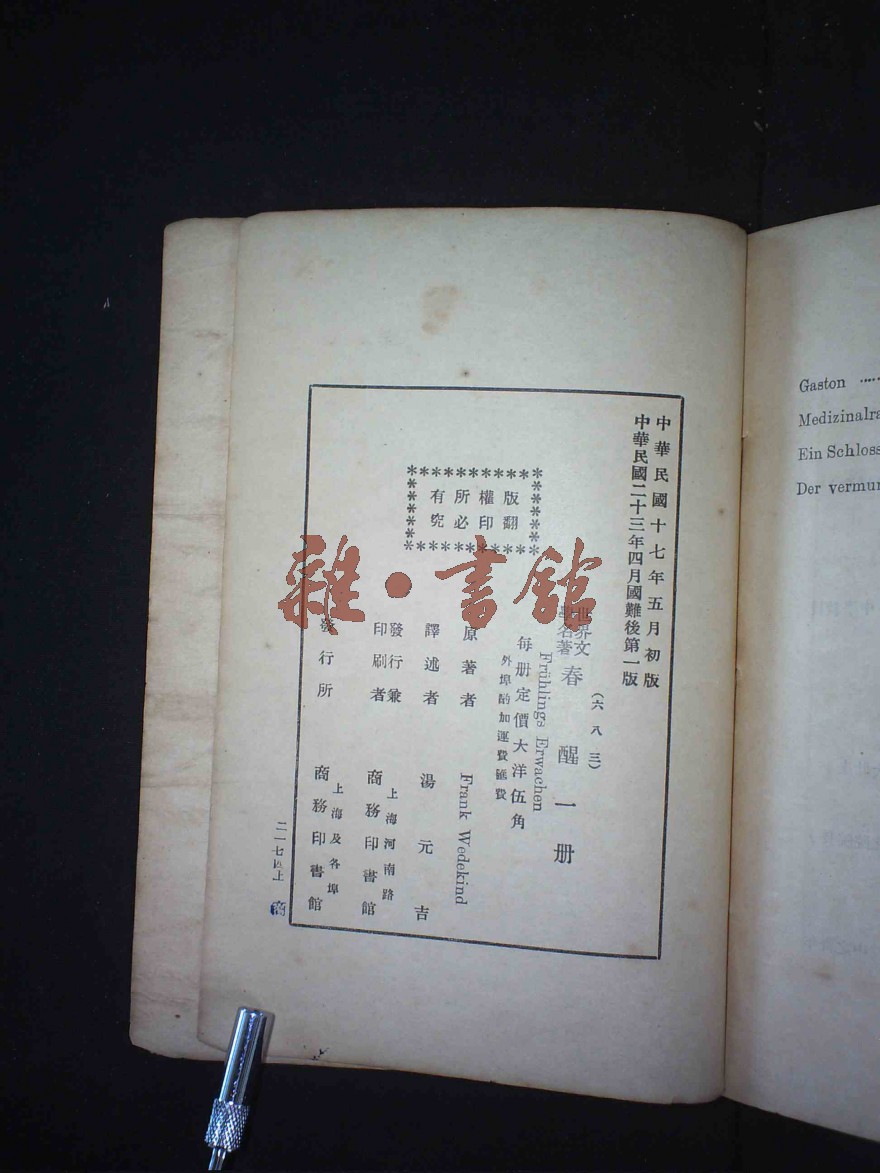 中華民國十七年五月初版
中華民國二十三年四月國難後第一版
(六八三)
世界文
學名著
春醒一册
Frühlings Erwachen
每册定價大洋伍角
外埠酌加運費匯費
原著者 Frank Wedekind
譯述者 湯元吉
發行兼
印刷者
上海河南路
商務印書館
發行所
上海及各埠
商務印書館
版權所有
翻印必究
二一七四上
雜·書館
Gaston .....
Medizinalra
Ein Schloss
Der vermun